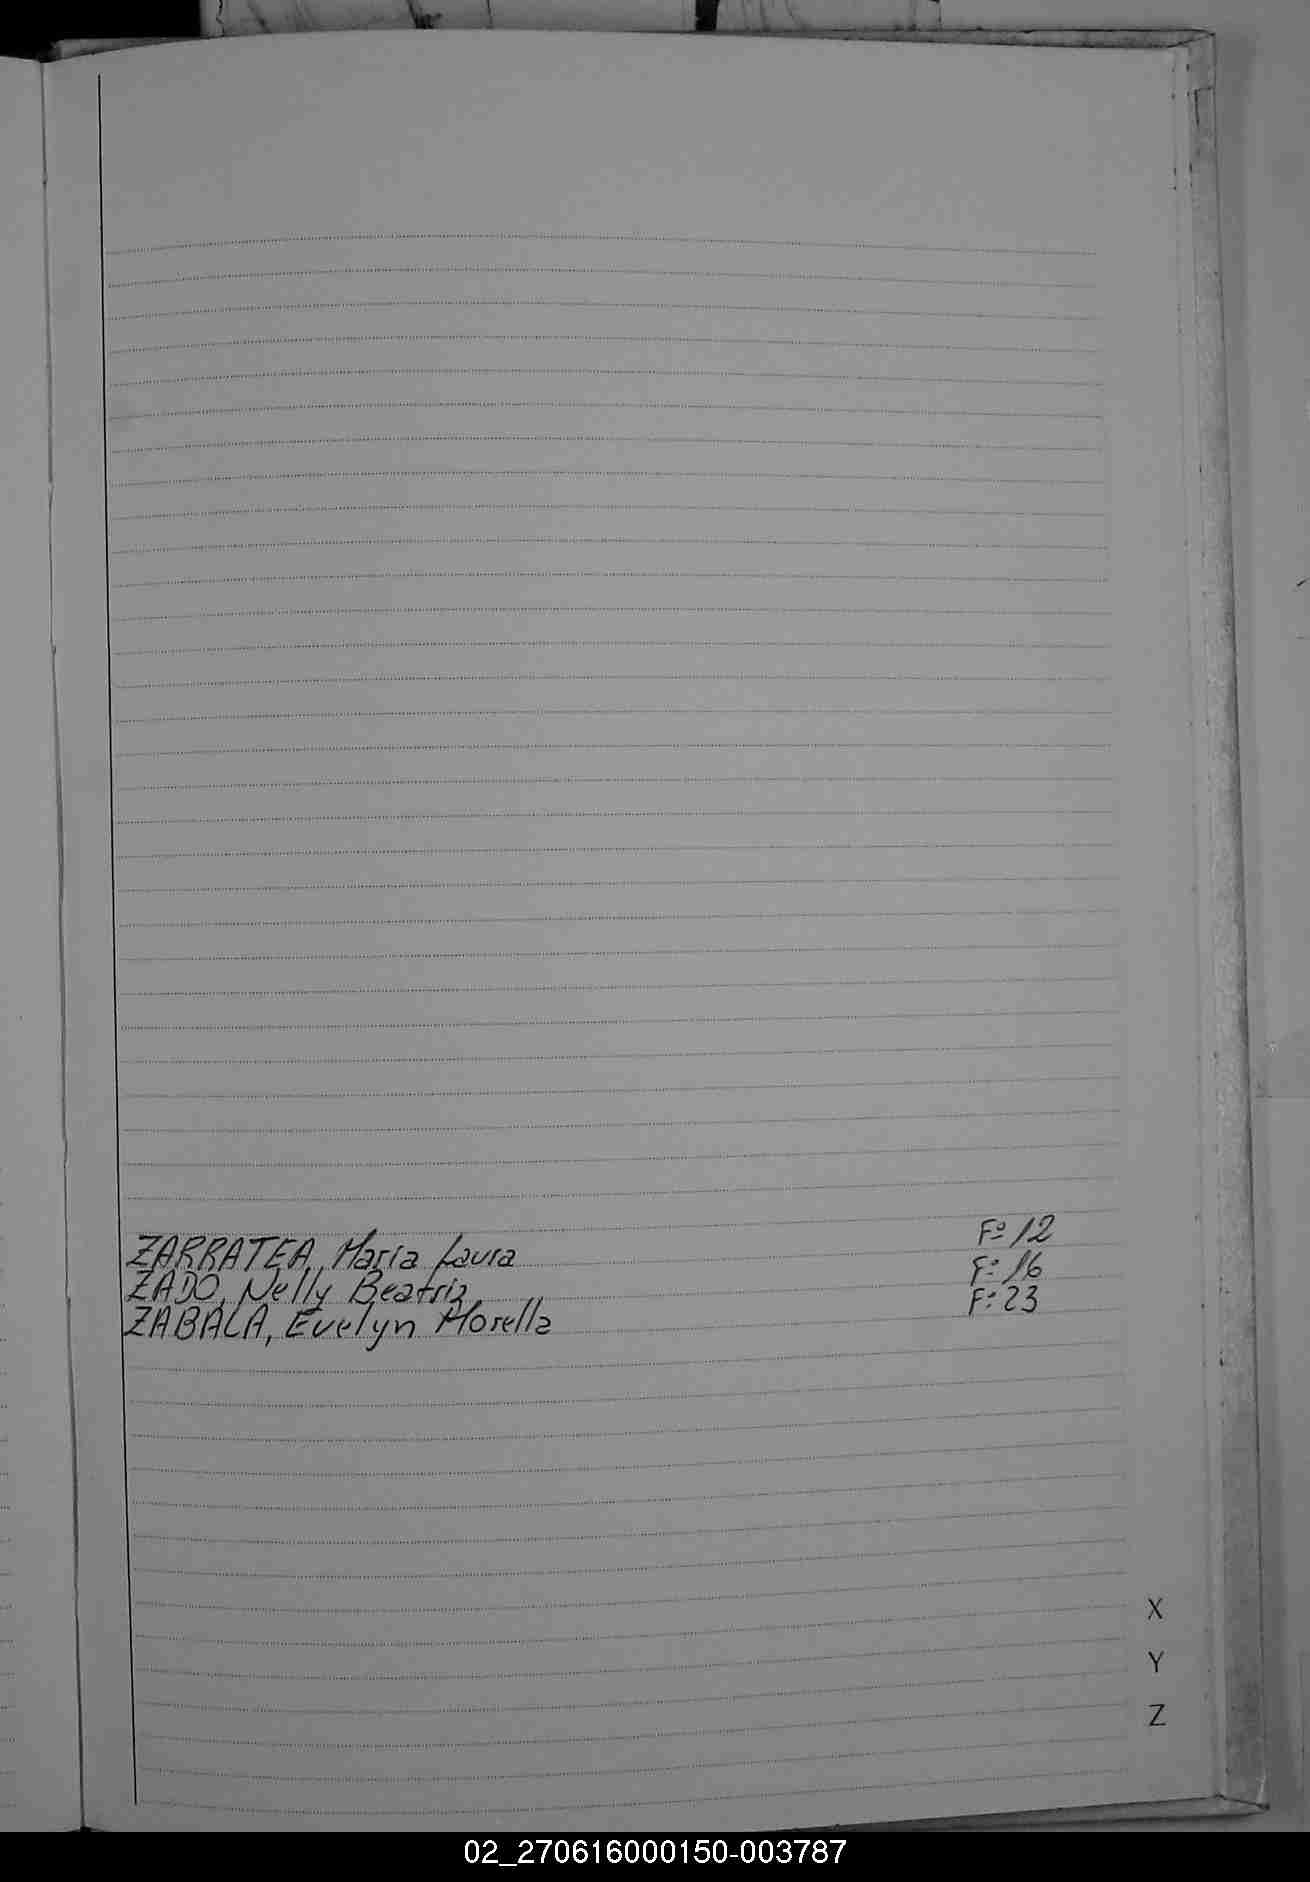 ZARRATEA, María Laura Fº 12
ZADO, Nelly Beatriz Fº 16
ZABALA, Evelyn Morella Fº 23
X
Y
Z
02_270616000150-003787